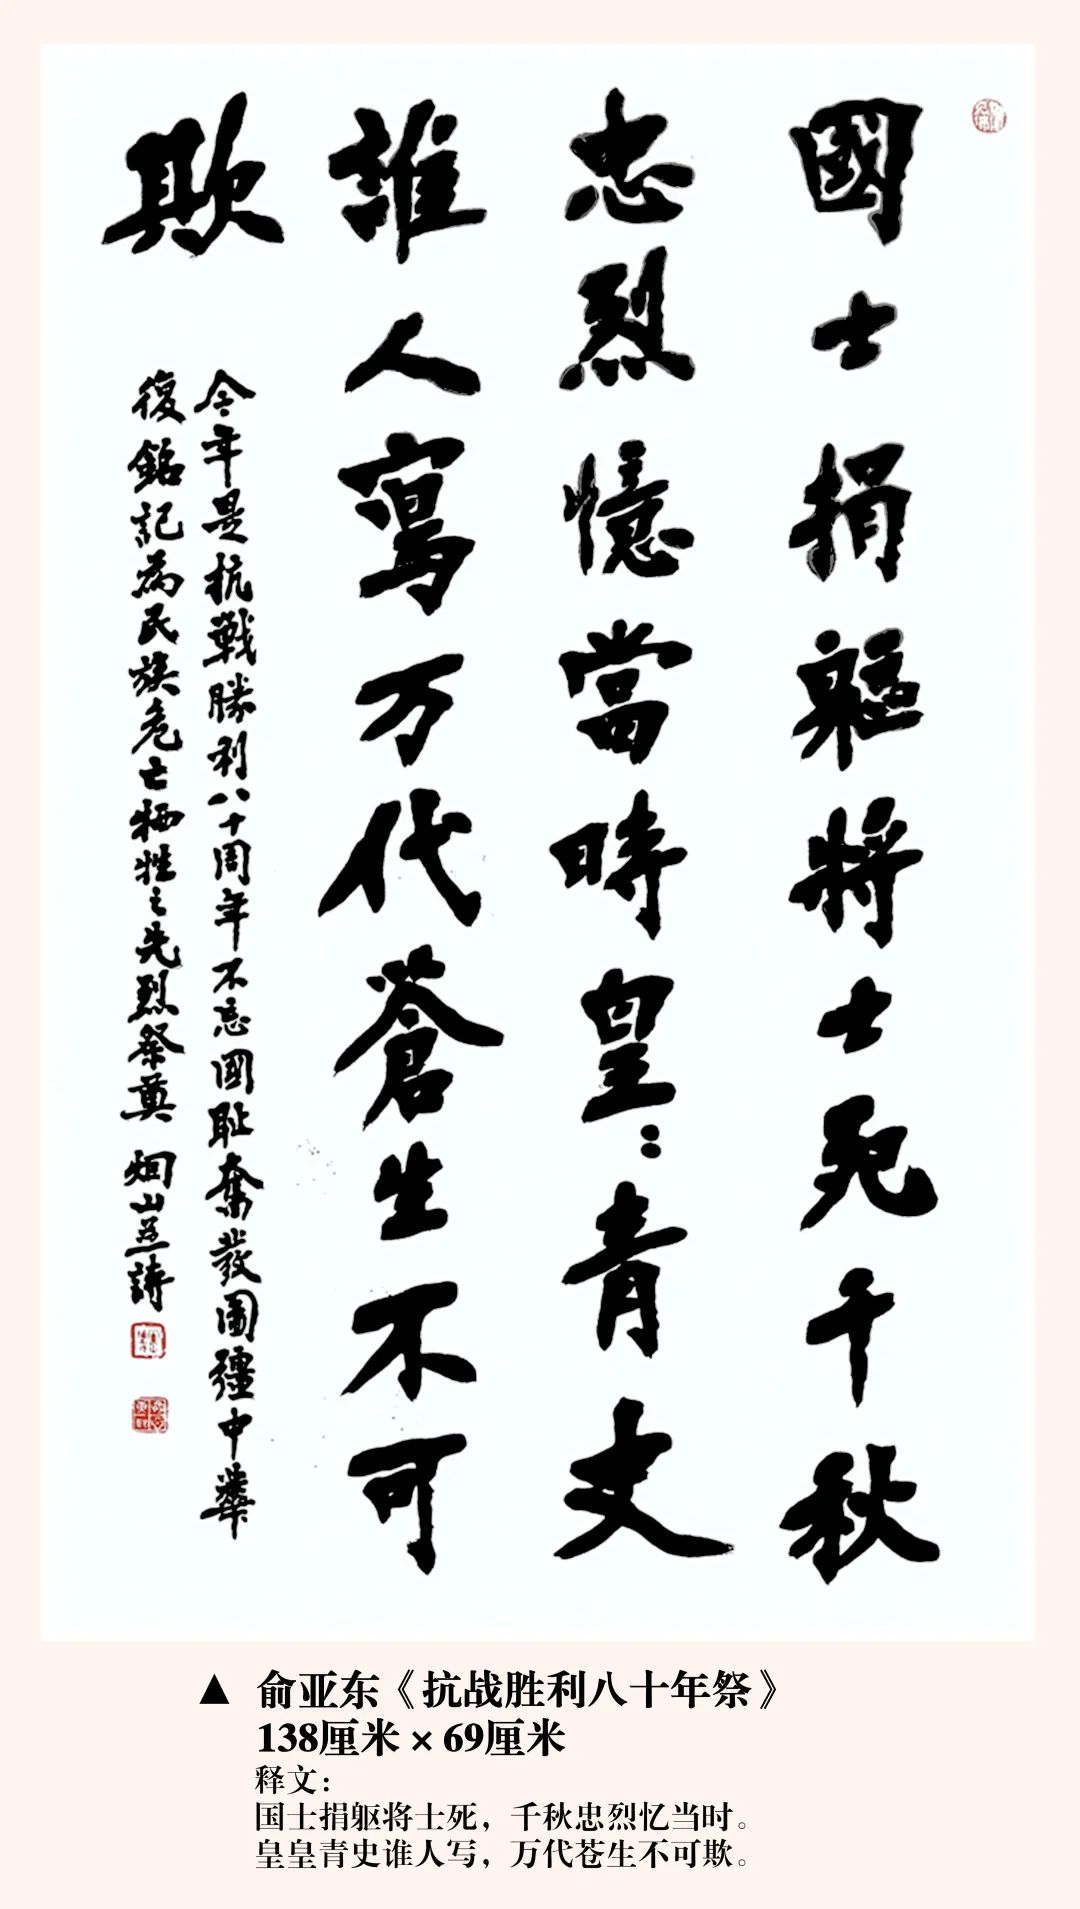 國士捐軀將士死千秋
忠烈憶當時皇：青史
誰人寫万代蒼生不可
欺
今年是抗戰勝利八十周年不忘國耻奮發圖彊中華
復銘記為民族危亡牺牲之先烈祭奠 炯山並詩
▲ 俞亚东《抗战胜利八十年祭》
138厘米 × 69厘米
释文：
国士捐躯将士死，千秋忠烈忆当时。
皇皇青史谁人写，万代苍生不可欺。